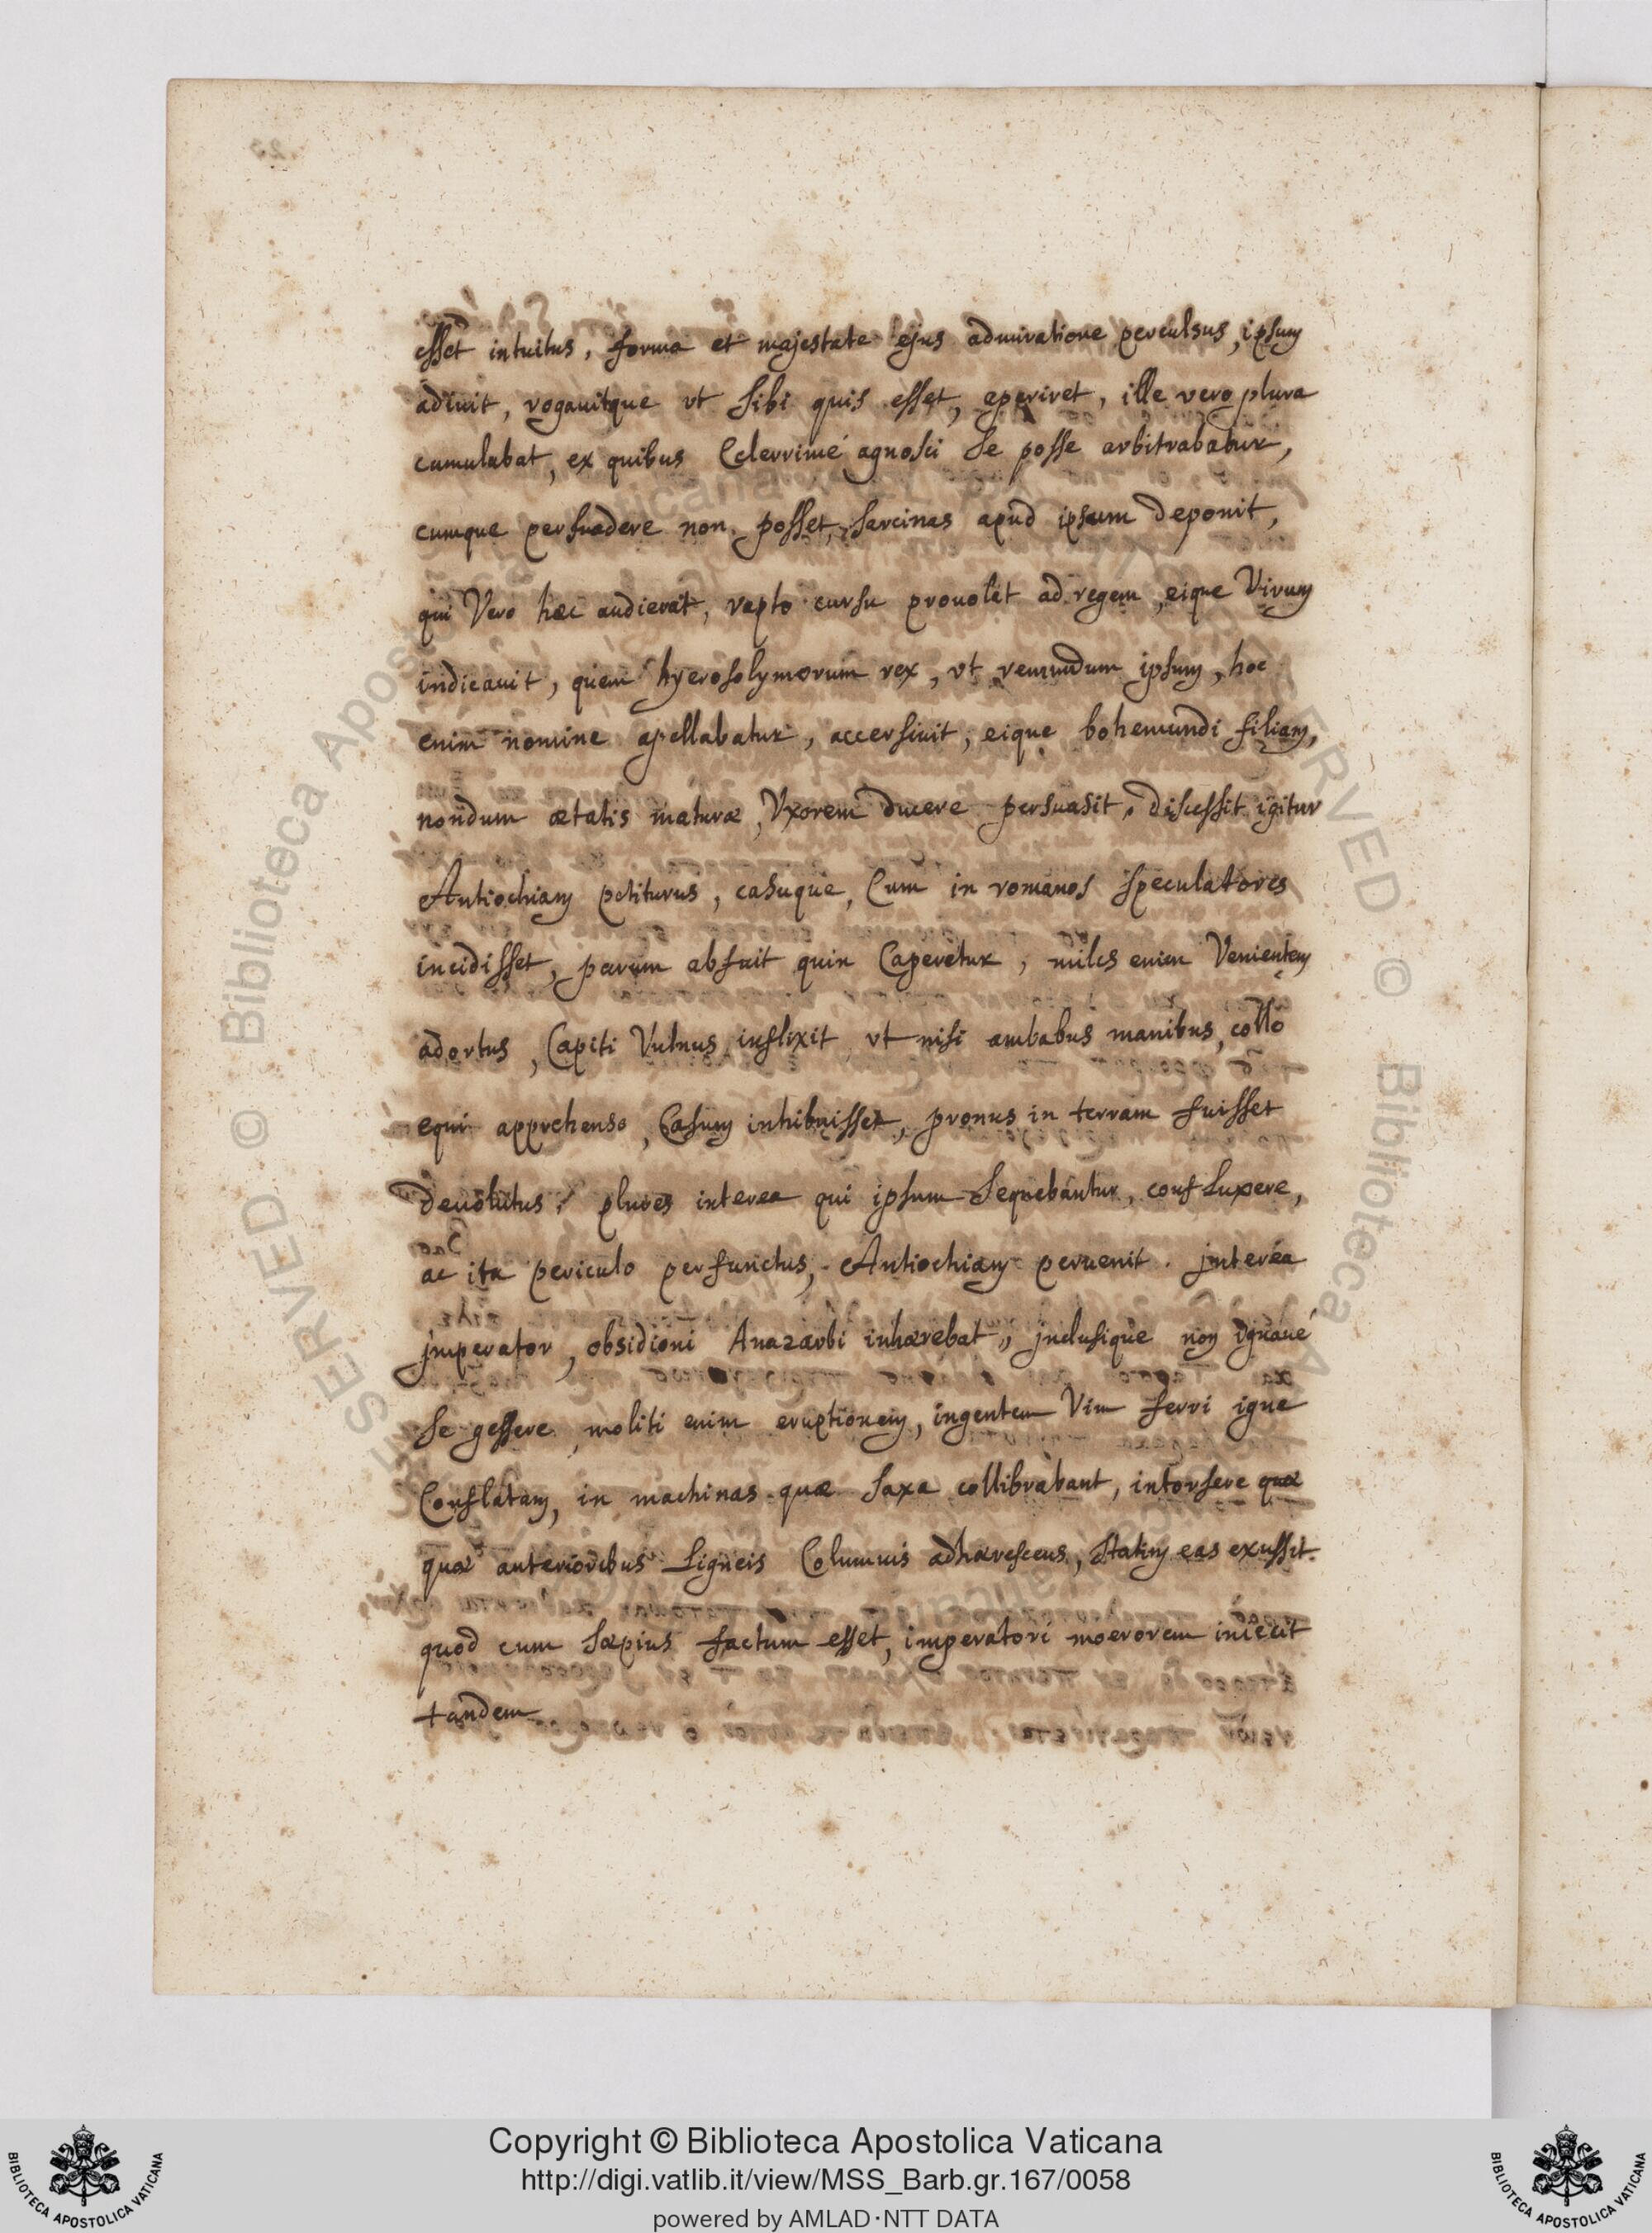 esset intuitus, forma et majestate ejus admiratione perculsus, ipsum
adiuit, rogauitque vt sibi quis esset, aperiret, ille vero plura
cumulabat, ex quibus Celerrimé agnosci se posse arbitrabatur,
cumque persuadere non posset, sarcinas apud ipsum deponit,
qui Vero hæc audierat, rapto cursu prouolat ad regem, eique Virum
indicauit, quem hyerosolymorum rex, vt remundum ipsum, hoc
enim nomine apellabatur, accersiuit, eique bohemundi filiam,
nondum ætatis maturæ, Vxorem ducere persuasit, discessit igitur
Antiochiam petiturus, casuque, Cum in romanos speculatores
incidisset, parum abfuit quin Caperetur, miles enim Venientem
adortus, Capiti Vulnus inflixit vt nisi ambabus manibus, collo
equi apprehenso, Casum inhibuisset, pronus in terram fuisset
deuolutus, plures interea qui ipsum sequebantur, confluxere,
ac ita periculo perfunctus, Antiochiam peruenit. jnterea
jmperator, obsidioni Anazarbi inhærebat, jnclusique non ignaué
se gessere, moliti enim eruptionem, ingentem Vim ferri igne
Conflatam, in machinas quæ saxa collibrabant, intorsere quæ
quæ anterioribus Ligneis Columnis adhærescens, statim eas exussit.
quod cum sæpius factum esset, imperatori moerorem iniecit
tandem
Copyright © Biblioteca Apostolica Vaticana
http://digi.vatlib.it/view/MSS_Barb.gr.167/0058
powered by AMLAD·NTT DATA